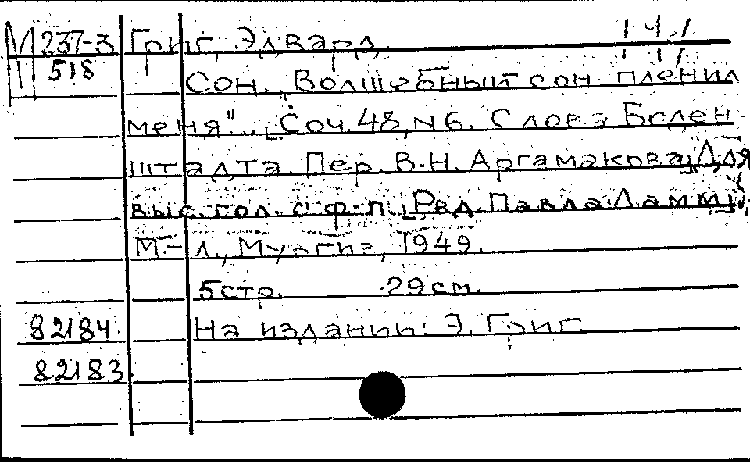 М 237-3 Григ, Эдвард.
518
Сон. „Волшебный сон пленил
меня". Соч. 48, N 6. Слова Боден
штадта. Пер. В.Н. Аргамакова. Для
выс. гол. с ф-п. Ред. Павла Ламм.
М.-Л., Музгиз, 1949.
5 стр. 29 см.
82184 На издании: Э. Григ
82183